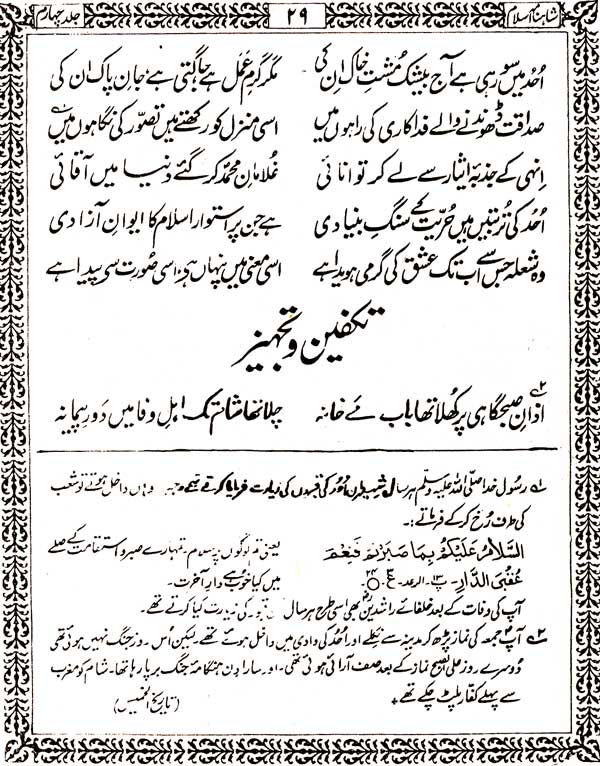 شاہنامۂ اسلام ۲۹ جلد چہارم
اُحد میں سو رہی ہے آج بیشک مُشتِ خاک اُن کی مگر گرمِ عَمل ہے جاگتی ہے جانِ پاک ان کی
صداقت ڈھونڈنے والے فداکاری کی راہوں میں اسی منزل کو رکھتے ہیں تصوّر کی نگاہوں میں ۱
اِنہی کے جذبۂ ایثار سے لے کر توانائی غُلامانِ محمّدؐ کر گئے دنیا میں آقائی
اُحد کی تُربتیں ہیں حُریّت کے سنگِ بنیادی ہے جن پر استوار اسلام کا ایوانِ آزادی
وہ شعلہ جس سے اب تک عشق کی گرمی ہویدا ہے اسی معنی میں پنہاں ہے، اسی صُورت سے پیدا ہے
تکفین و تجہیز
۲ اذانِ صبحگاہی پر کھُلا تھا باب مَے خانہ چلا تھا شام تک اہلِ وفا میں دَورِ پیمانہ
۱ رسول خدا صلّی اللہ علیہ وسلّم ہر سال شہیدانِ اُحد کی قبروں کی زیارت فرمایا کرتے تھے وہاں داخل ہوتے تو شعب
کی طرف رُخ کر کے فرماتے :۔
السَّلَامُ عَلَيْكُمْ بِمَا صَبَرْتُمْ فَنِعْمَ یعنی تم لوگوں پر سلام۔ تمہارے صبر و استقامت کے صلے
عُقْبَى الدَّارِ۔ پ ۱۳۔ الرعد۔ ع میں کیا خوب ہے دارِ آخرت۔
آپ کی وفات کے بعد خلفائے راشدینؓ بھی اسی طرح ہر سال قبور کی زیارت کیا کرتے تھے۔
۲ آپؐ جمعہ کی نماز پڑھ کر مدینہ سے نکلے اور اُحد کی وادی میں داخل ہوئے تھے۔ لیکن اُس روز جنگ نہیں ہوئی تھی
دُوسرے روز علی الصبح نماز کے بعد صف آرائی ہوئی تھی۔ اور سارا دن ہنگامۂ جنگ برپا رہا تھا۔ شام کو مغرب
سے پہلے کفار پلٹ چکے تھے ٭ (تاریخ الخمیس)